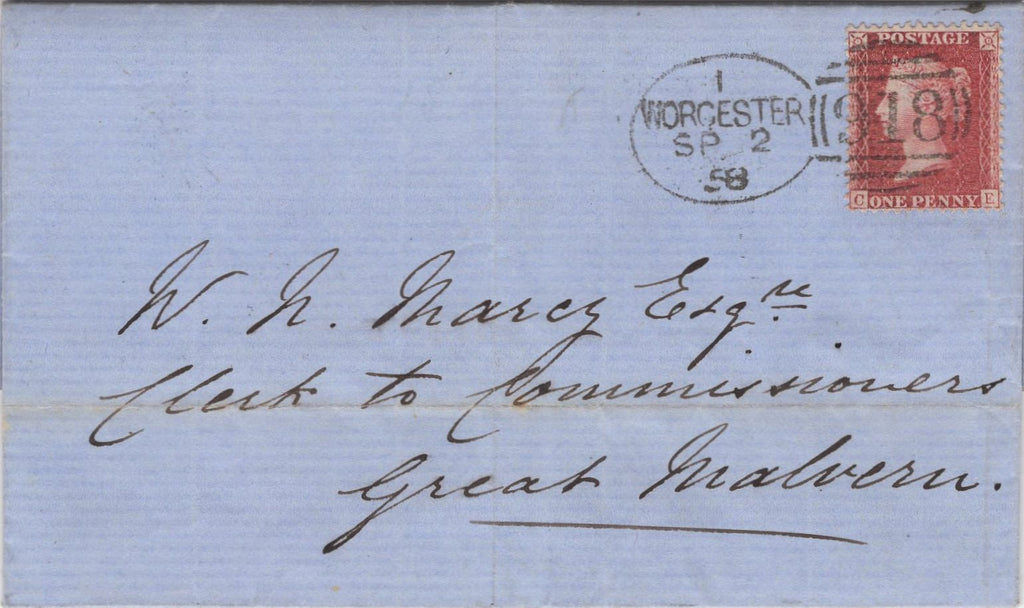 POSTAGE
1
WORCESTER
SP 2
58
918
C ONE PENNY E
W. N. Marcy Esqre.
Clerk to Commissioners
Great Malvern.